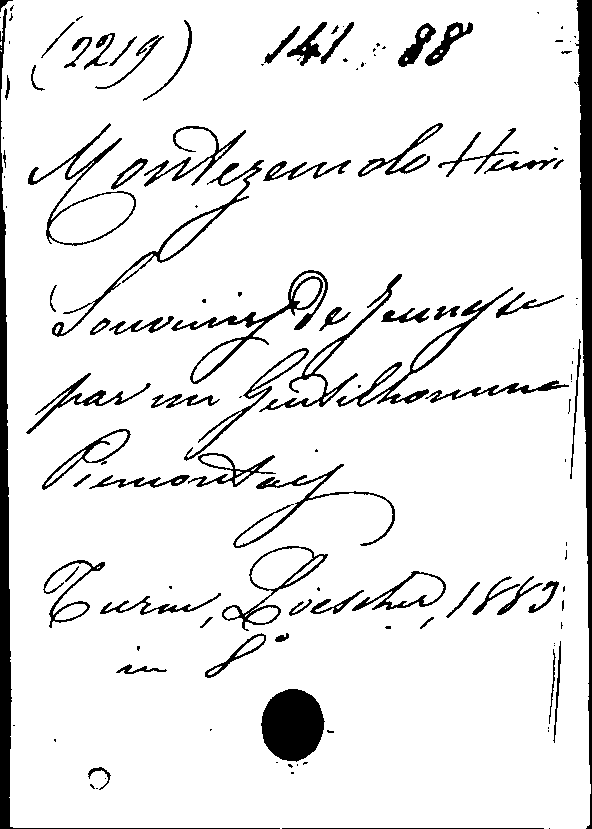 (2219) 141. 88
Montezemolo Henri
Souvenirs De Jeunesse
par un Gentilhomme
Piemontais
Turin, Loescher, 1883
in 8°